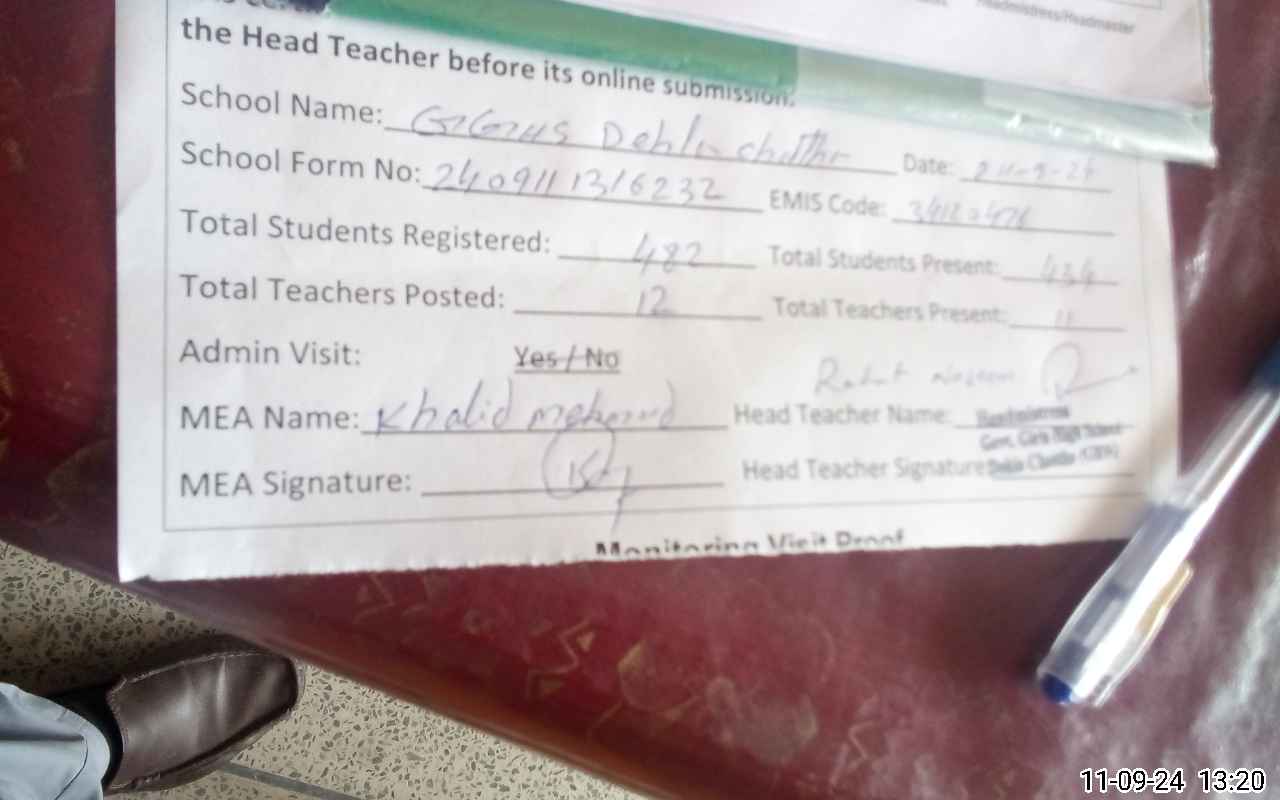 Headmistress/Headmaster
the Head Teacher before its online submission.
School Name: GGHS Dehla chattha Date: 11-9-24
School Form No: 240911 1316232 EMIS Code:
Total Students Registered: 482 Total Students Present: 434
Total Teachers Posted: 12 Total Teachers Present: 11
Admin Visit: Yes / No
MEA Name: Khalid mehmood Head Teacher Name:
Headmistress
Govt. Girls High School
MEA Signature: Head Teacher Signature
Monitoring Visit Proof
11-09-24 13:20